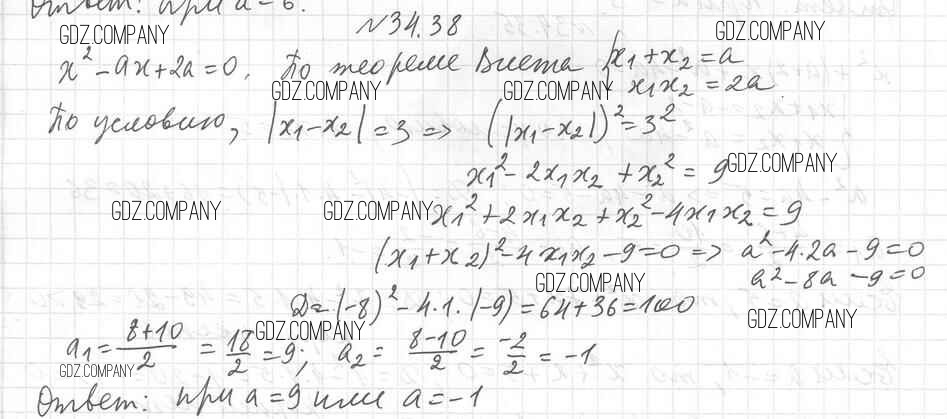 Ответ: при a = 6.
N34.38
GDZ.COMPANY GDZ.COMPANY
x² - ax + 2a = 0. По теореме Виета { x₁ + x₂ = a
x₁x₂ = 2a
GDZ.COMPANY GDZ.COMPANY
По условию, |x₁ - x₂| = 3 => (|x₁ - x₂|)² = 3²
x₁² - 2x₁x₂ + x₂² = 9 GDZ.COMPANY
GDZ.COMPANY GDZ.COMPANY x₁² + 2x₁x₂ + x₂² - 4x₁x₂ = 9
(x₁ + x₂)² - 4x₁x₂ - 9 = 0 => a² - 4·2a - 9 = 0
a² - 8a - 9 = 0
GDZ.COMPANY
D = (-8)² - 4·1·(-9) = 64 + 36 = 100
GDZ.COMPANY GDZ.COMPANY
a₁ = (8+10)/2 = 18/2 = 9; a₂ = (8-10)/2 = -2/2 = -1
GDZ.COMPANY
Ответ: при a = 9 или a = -1